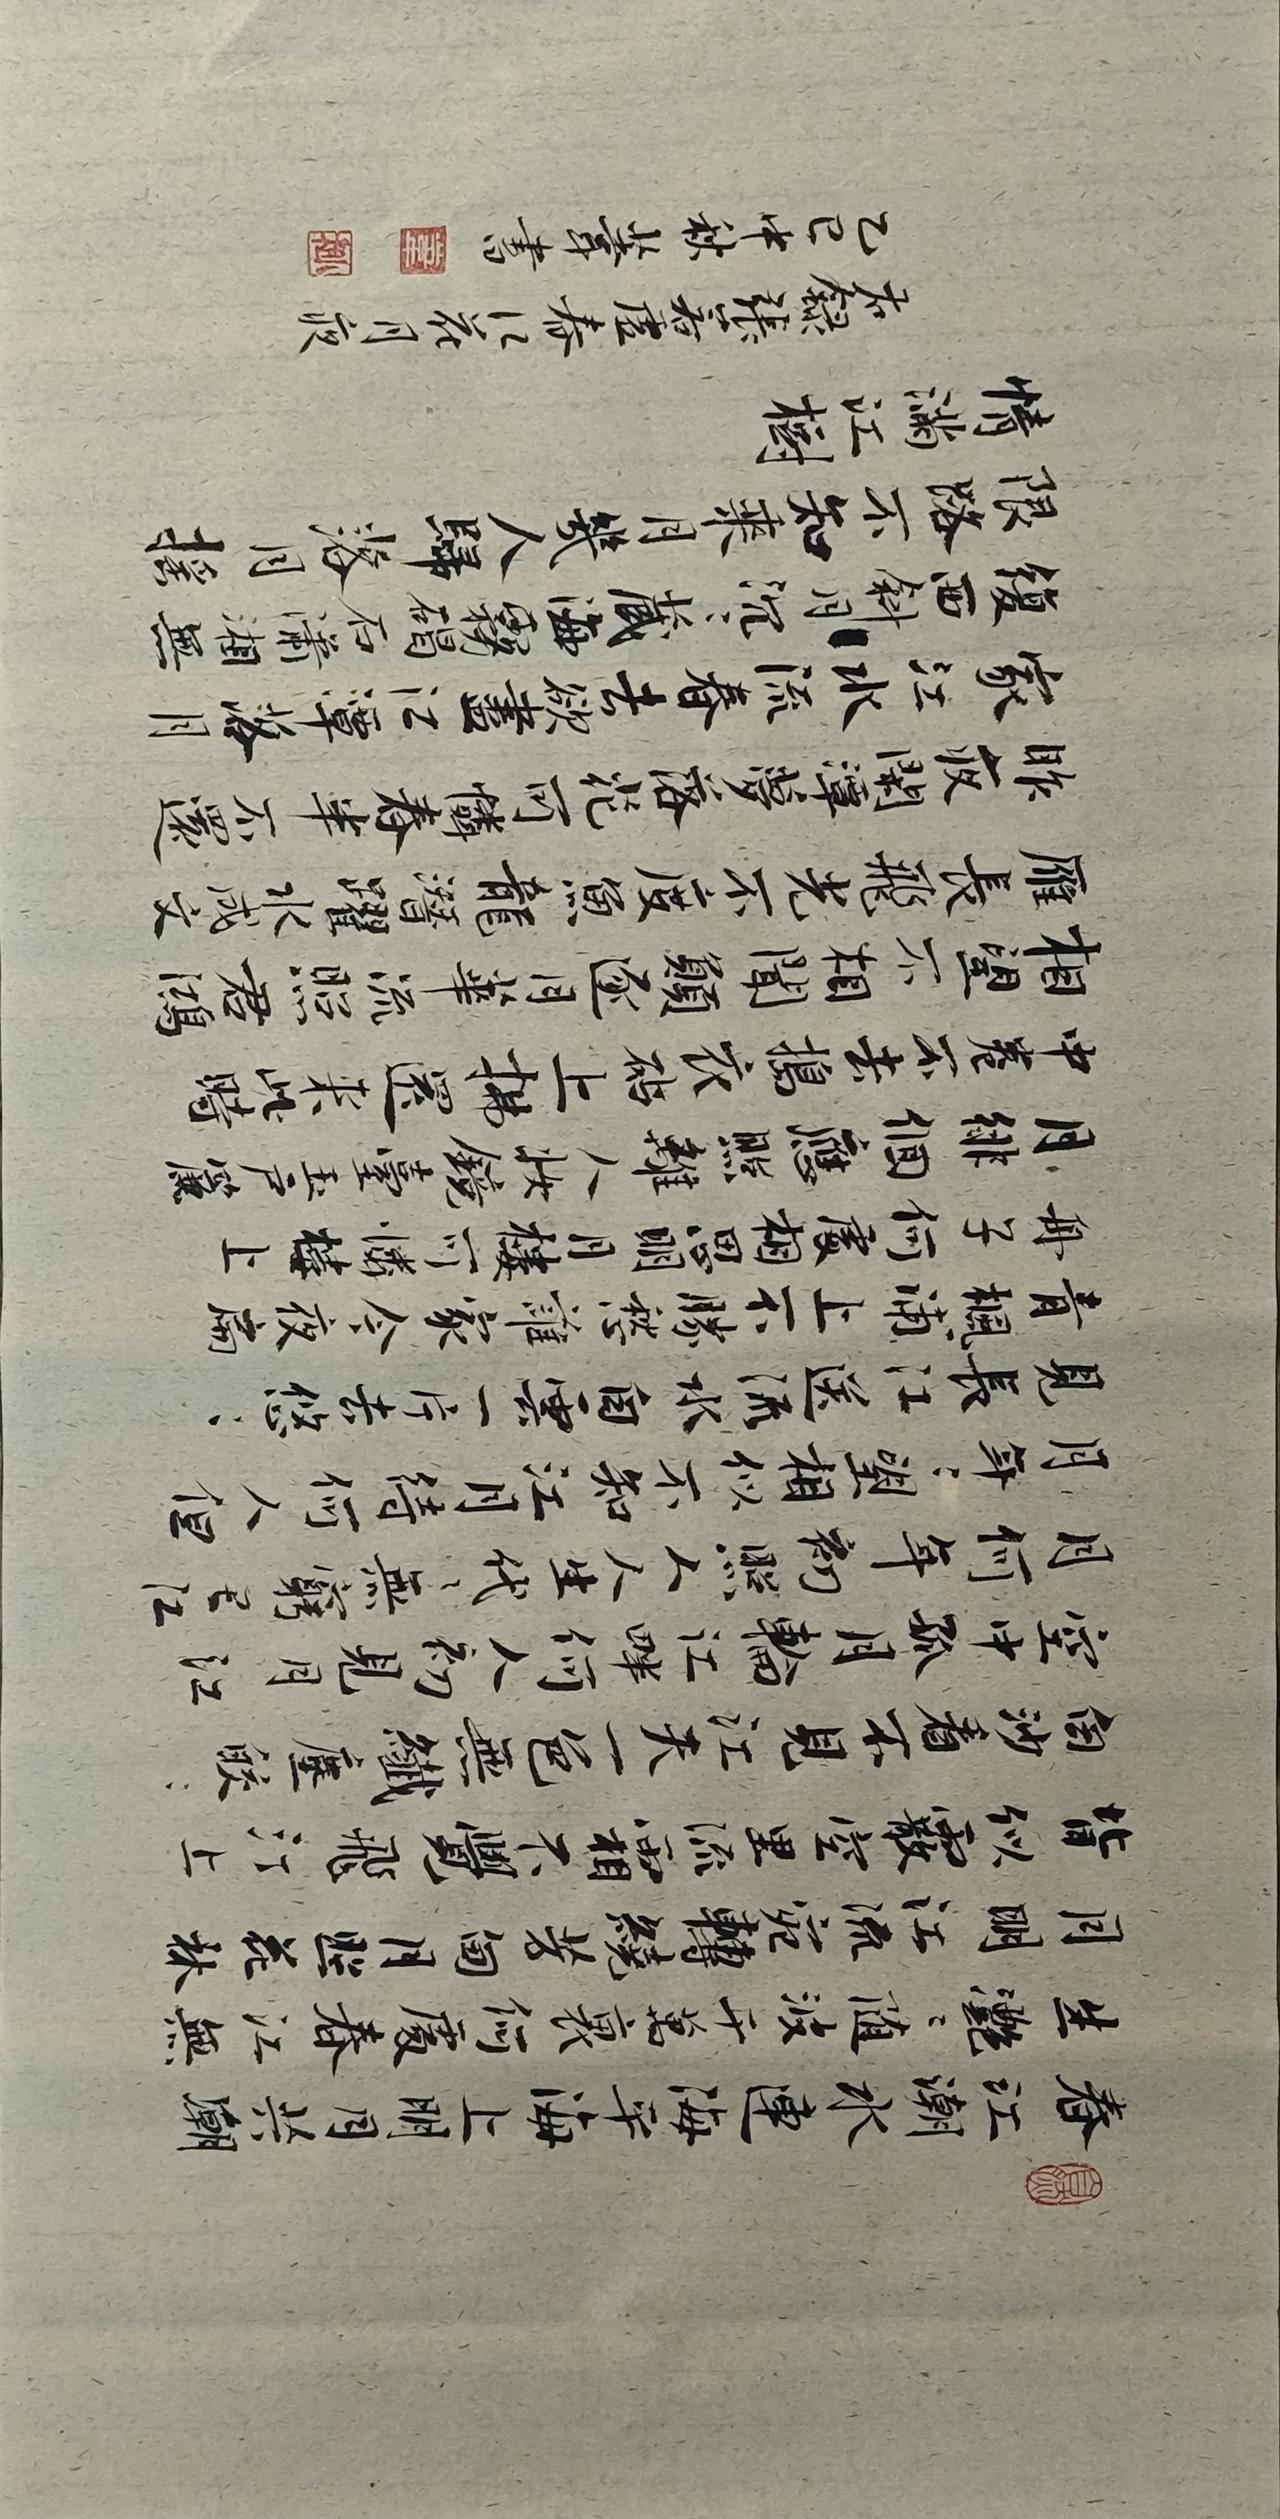 春江潮水連海平海上明月共潮
生灩〻隨波千萬裏何處春江無
月明江流宛轉繞芳甸月照花林
皆似霰空里流霜不覺飛汀上
白沙看不見江天一色無纖塵皎〻
空中孤月輪江畔何人初見月江
月何年初照人人生代〻無窮已江
月年〻望相似不知江月待何人但
見長江送流水白雲一片去悠〻
青楓浦上不勝愁誰家今夜扁
舟子何處相思明月樓可憐樓上
月徘徊應照離人妝鏡臺玉戶簾
中卷不去搗衣砧上拂還來此時
相望不相聞願逐月華流照君鴻
雁長飛光不度魚龍潛躍水成文
昨夜閑潭夢落花可憐春半不還
家江水流春去欲盡江潭落月
復西斜〻月沉〻藏海霧碣石瀟湘無
限路不知乘月幾人歸落月搖
情滿江樹
右錄張若虛春江花月夜
乙巳中秋書